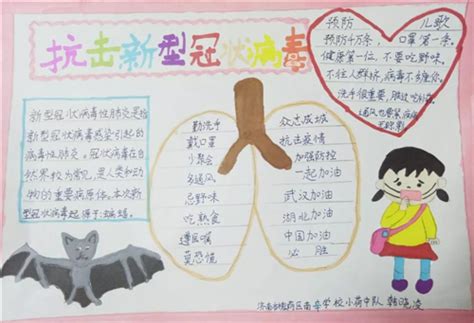 抗击新型冠状病毒
预防 儿歌
预防千万条，口罩第一条。
健康第一位，不要吃野味。
不往人群挤，病毒不缠你。
洗手很重要，
新型冠状病毒性肺炎是指
新型冠状病毒感染引起的
病毒性肺炎。冠状病毒在自
然界较为常见，是人类和动
物的重要病原体。本次新
型冠状病毒起源于蝙蝠。
勤洗手
戴口罩
少聚会
多通风
忌野味
吃熟食
遵医嘱
莫恐慌
众志成城
抗击疫情
加强防控
一起加油
武汉加油
湖北加油
中国加油
必胜
学校小荷中队 韩晓凌